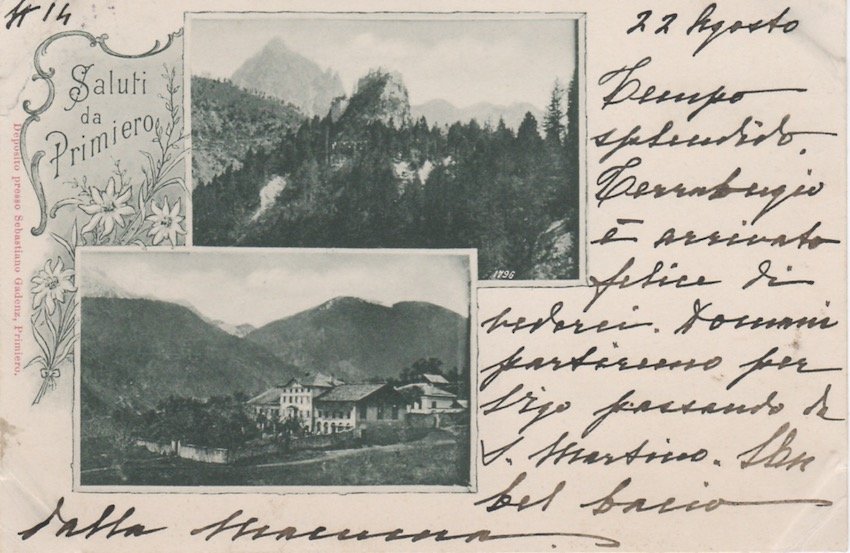 # 14
Saluti
da
Primiero
Deposito presso Sebastiano Gadenz, Primiero.
1796
22 Agosto
Tempo
splendido.
Terrabugio
è arrivato
felice di
vederci. Domani
partiremo per
Vigo passando da
S. Martino. Un
bel bacio
dalla